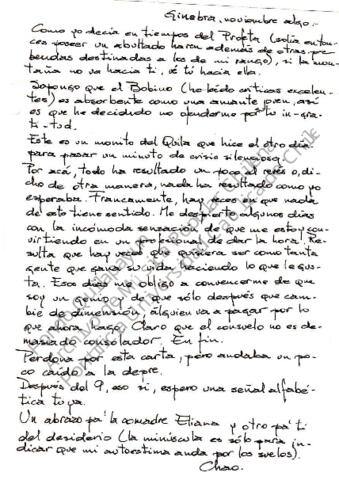 Ginebra, noviembre algo.-
Como yo decía en tiempos del Profeta (solía enton-
ces poseer un abultado harem además de otras pre-
bendas destinadas a los de mi rango), si la mon-
taña no va hacia ti, vé tú hacia ella.
Supongo que el Bobino (he leído críticas excelen-
tes) es absorbente como una amante joven, así
es que he decidido no ofenderme por tu in-gra-
ti-tud.
Este es un monito del Quila que hice el otro día
para pasar un minuto de crisis silenciosa.
Por acá, todo ha resultado un poco al revés o, di-
cho de otra manera, nada ha resultado como yo
esperaba. Francamente, hay veces en que nada
de esto tiene sentido. Me despierto algunos días
con la incómoda sensación de que me estoy con-
virtiendo en un profesional de dar la hora. Re-
sulta que hay veces que quisiera ser como tanta
gente que gana su vida haciendo lo que le gus-
ta. Esos días me obligo a convencerme de que
soy un genio y de que sólo después que cam-
bie de dimensión, alguien va a pagar por lo
que ahora hago. Claro que el consuelo no es de-
masiado consolador. En fin.
Perdona por esta carta, pero andaba un po-
co caído a la depre.
Después del 9, eso sí, espero una señal alfabé-
tica tuya.
Un abrazo pa' la comadre Eliana y otro pa' ti
del desiderio (la minúscula es sólo para in-
dicar que mi autoestima anda por los suelos).
Chao.